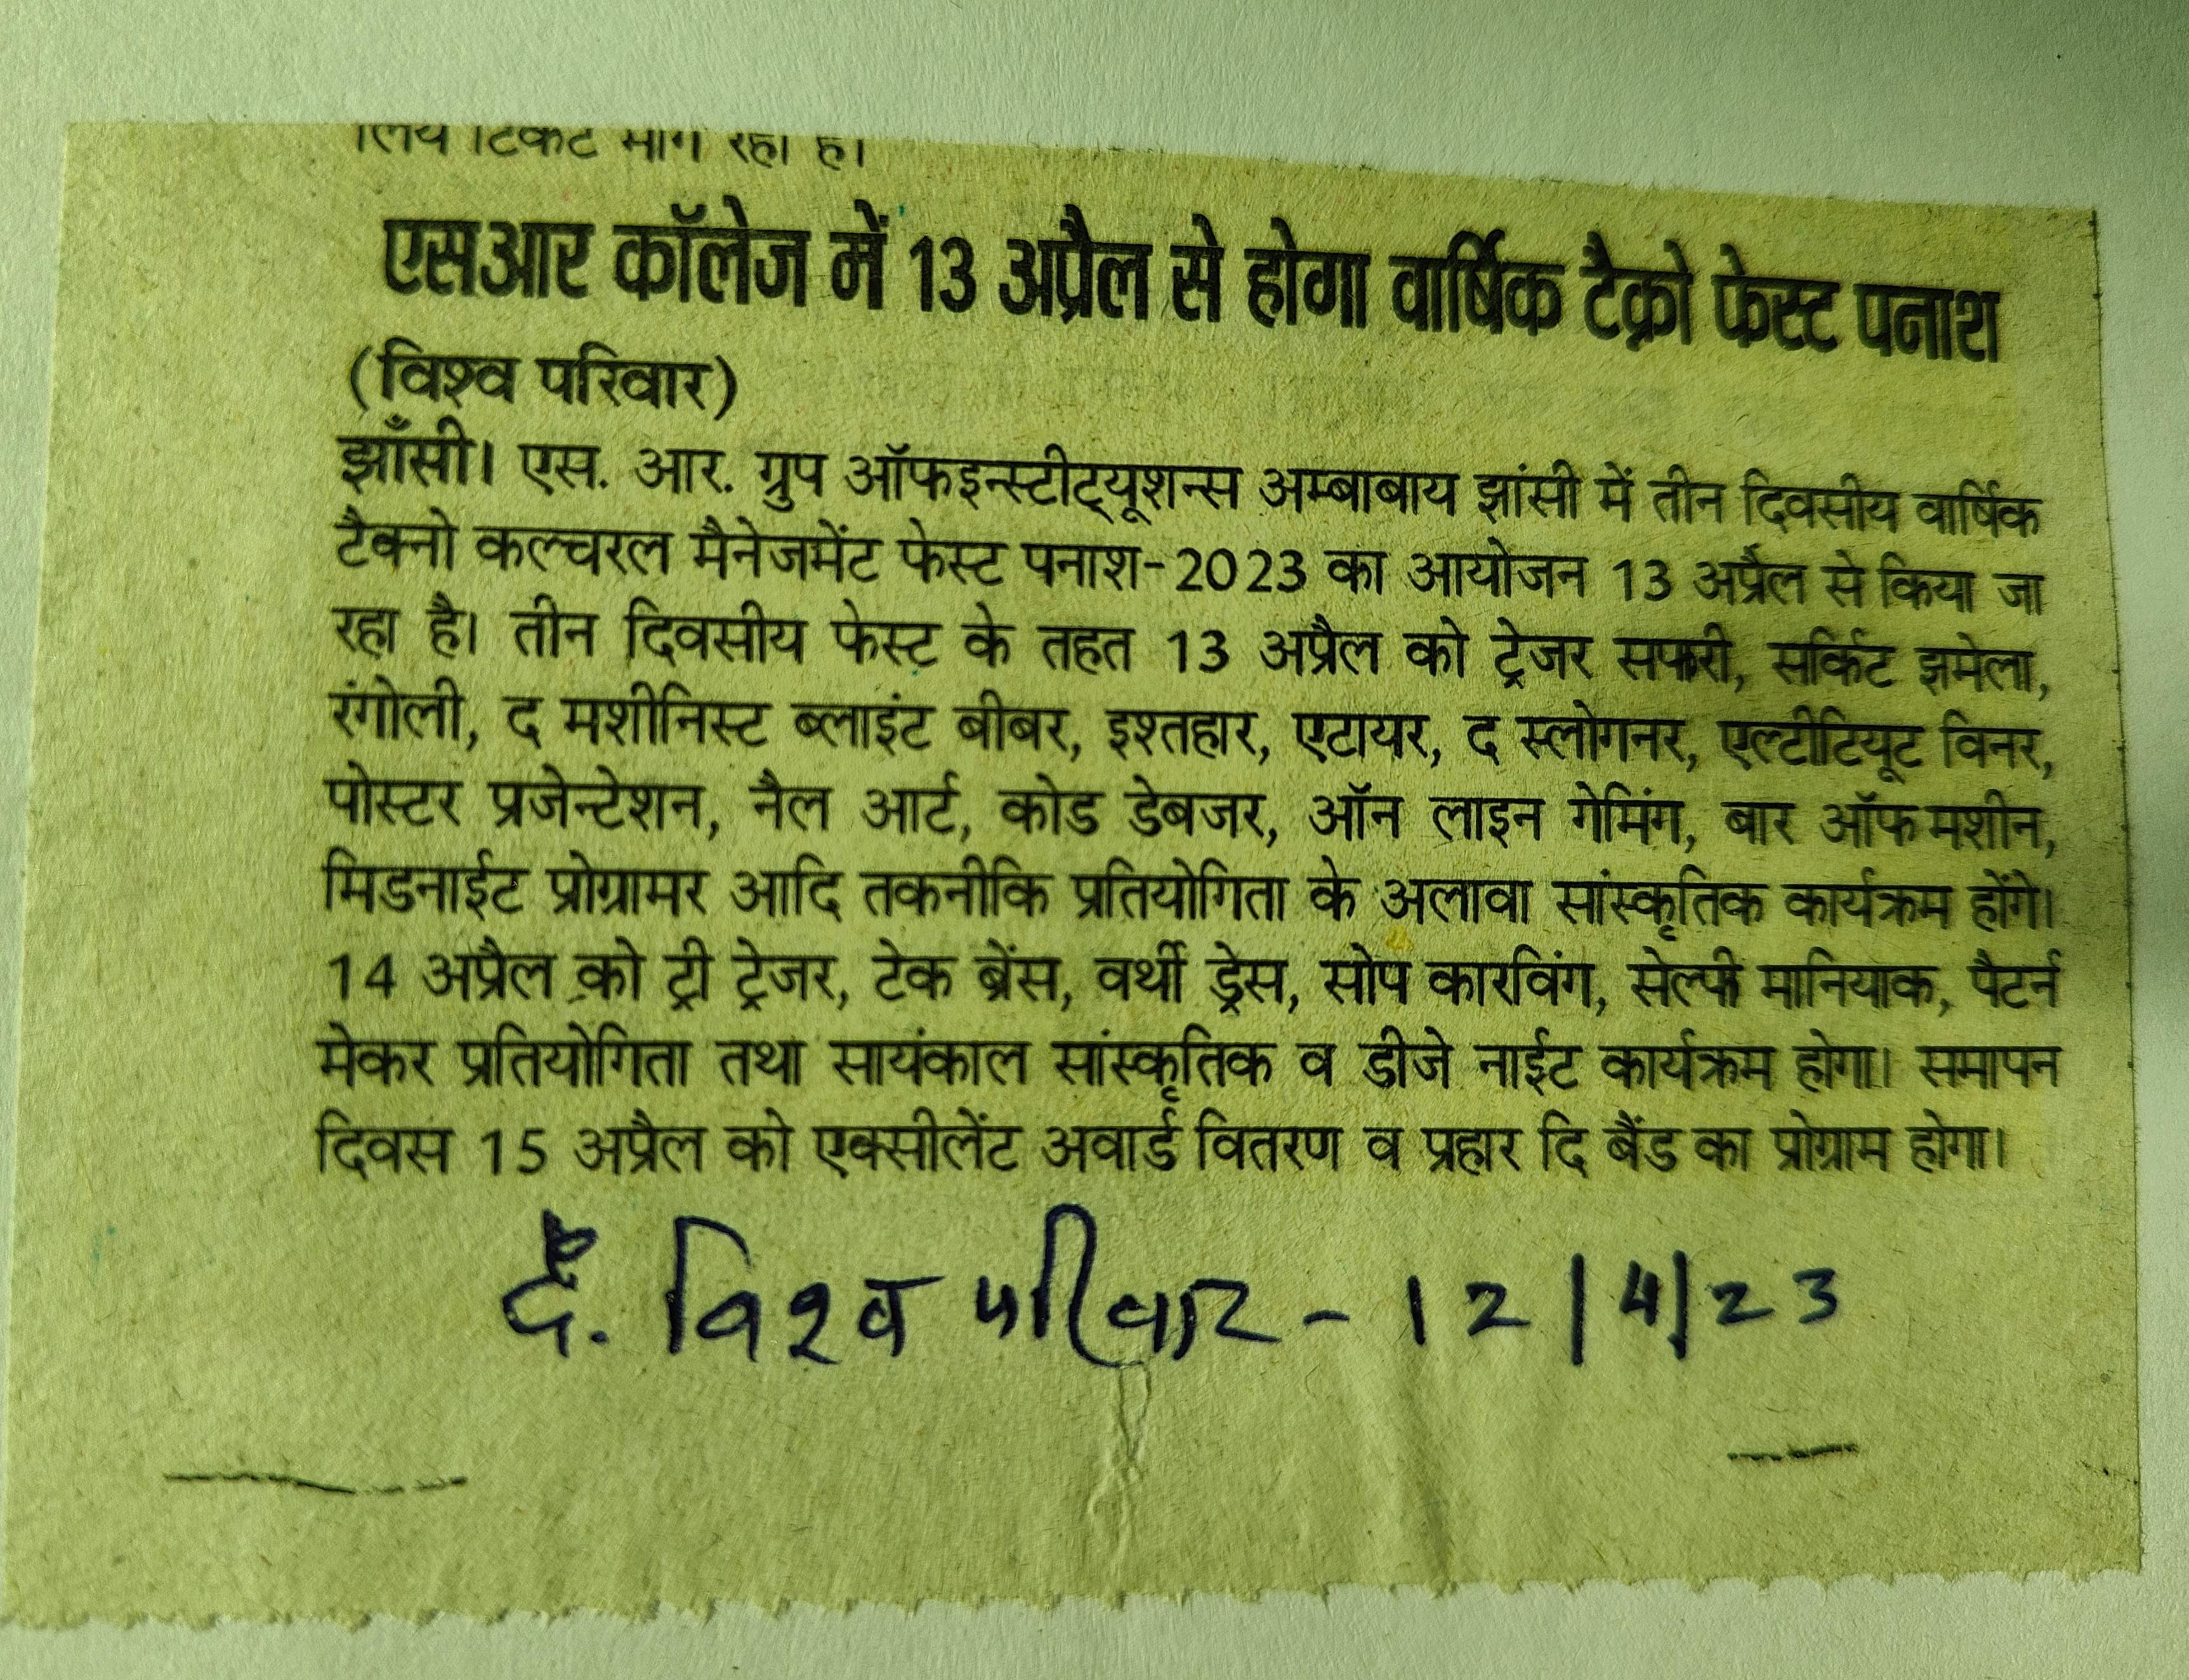 लिये टिकट मांग रहा है।
एसआर कॉलेज में 13 अप्रैल से होगा वार्षिक टैक्नो फेस्ट पनाश
(विश्व परिवार)
झाँसी। एस. आर. ग्रुप ऑफइन्स्टीट्यूशन्स अम्बाबाय झांसी में तीन दिवसीय वार्षिक
टैक्नो कल्चरल मैनेजमेंट फेस्ट पनाश-2023 का आयोजन 13 अप्रैल से किया जा
रहा है। तीन दिवसीय फेस्ट के तहत 13 अप्रैल को ट्रेजर सफारी, सर्किट झमेला,
रंगोली, द मशीनिस्ट ब्लाइंट बीबर, इश्तहार, एटायर, द स्लोगनर, एल्टीटियूट विनर,
पोस्टर प्रजेन्टेशन, नैल आर्ट, कोड डेबजर, ऑन लाइन गेमिंग, बार ऑफ मशीन,
मिडनाईट प्रोग्रामर आदि तकनीकि प्रतियोगिता के अलावा सांस्कृतिक कार्यक्रम होंगे।
14 अप्रैल को ट्री ट्रेजर, टेक ब्रेंस, वर्थी ड्रेस, सोप कारविंग, सेल्फी मानियाक, पैटर्न
मेकर प्रतियोगिता तथा सायंकाल सांस्कृतिक व डीजे नाईट कार्यक्रम होगा। समापन
दिवस 15 अप्रैल को एक्सीलेंट अवार्ड वितरण व प्रहार दि बैंड का प्रोग्राम होगा।
दै. विश्व परिवार - 12/4/23